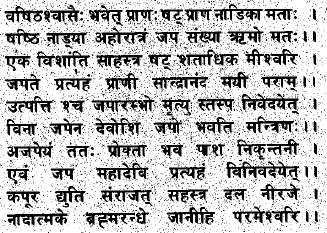 षष्ठिश्वासैः भवेत् प्राणः षट् प्राण नाडिका मताः ।
षष्ठि नाड्या अहोरात्रं जप संख्या ऋमो मतः।।
एक विशांति साहस्त्र षट् शताधिक मीश्वरि ।
जपते प्रत्यहं प्राणी सान्द्रानंद मयी पराम्।।
उत्पत्ति श्च जपारम्भो मृत्यु स्तस्प निवेदयेत्।
विना जपेन देवोशि जपो भवति मन्त्रिणः।।
अजपेयं ततः प्रोक्ता भव पाश निकृन्तनी ।
एवं जप महादेवि प्रत्यहं विनिवदेयेत्।।
कपूर द्युति संराजत् सहस्त्र दल नीरजे ।
नादात्मके ब्रह्मरन्ध्रे जानीहि परमेश्वरि।।